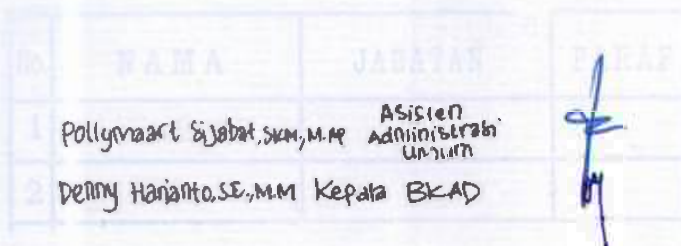 No. NAMA JABATAN PARAF
1 Pollymaart Sijabat, SKM, M.AP Asisten Administrasi Umum
2 Denny Harianto, SE., M.M Kepala BKAD